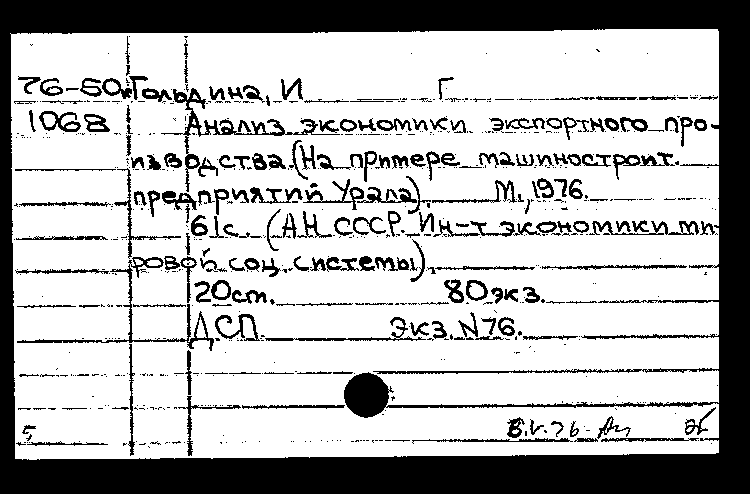 76-50к Гольдина, И Г
1068 Анализ экономики экспортного про-
изводства. (На примере машиностроит.
предприятий Урала). М., 1976.
61с. (АН СССР. Ин-т экономики ми-
ровой соц. системы).
20см. 80экз.
ДСП. Экз. N76.
5